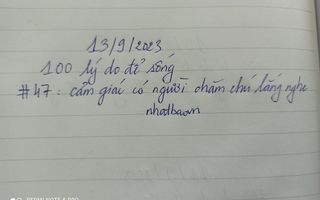 13/9/2023
100 lý do để sống
#47: cảm giác có người chăm chú lắng nghe
nhatbaovn
REDMI NOTE 8 PRO